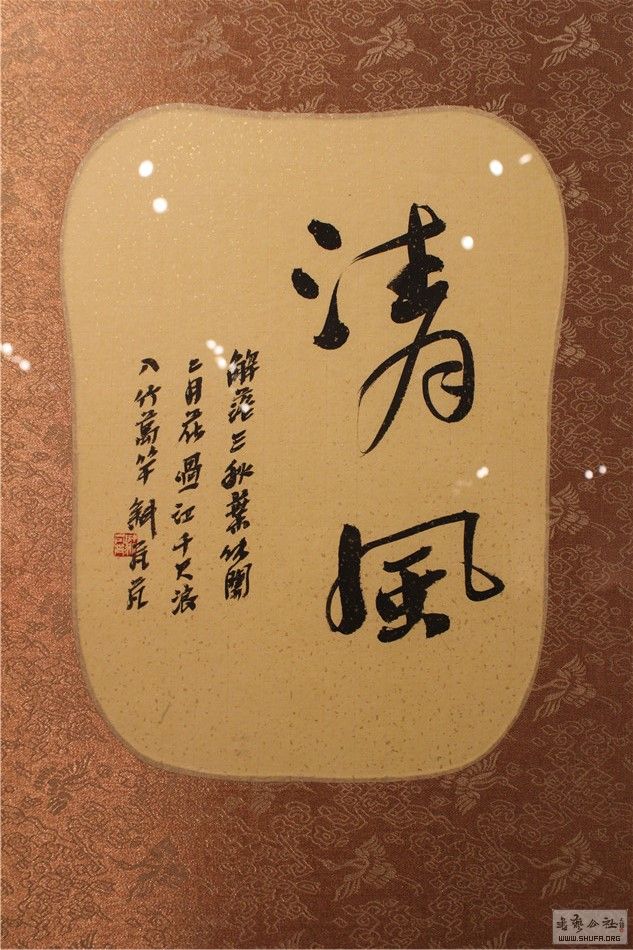 清風
解落三秋葉能開
二月花過江千尺浪
入竹萬竿斜
書藝公社
WWW.SHUFA.ORG